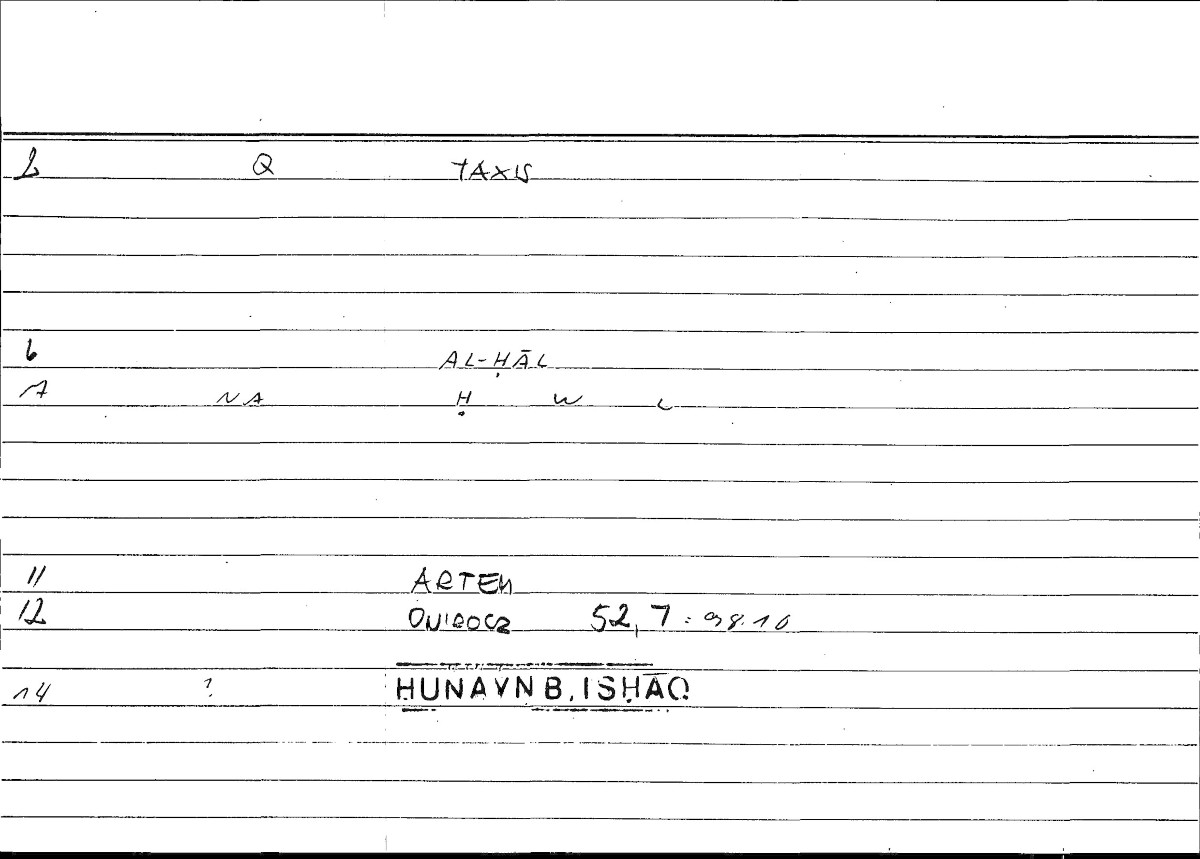 2 Q TAXIS
6 AL-ḤĀL
7 NA Ḥ W L
11 ARTEM
12 ONIROCR 52,7: 98.10
14 ? ḤUNAYN B. ISḤĀQ